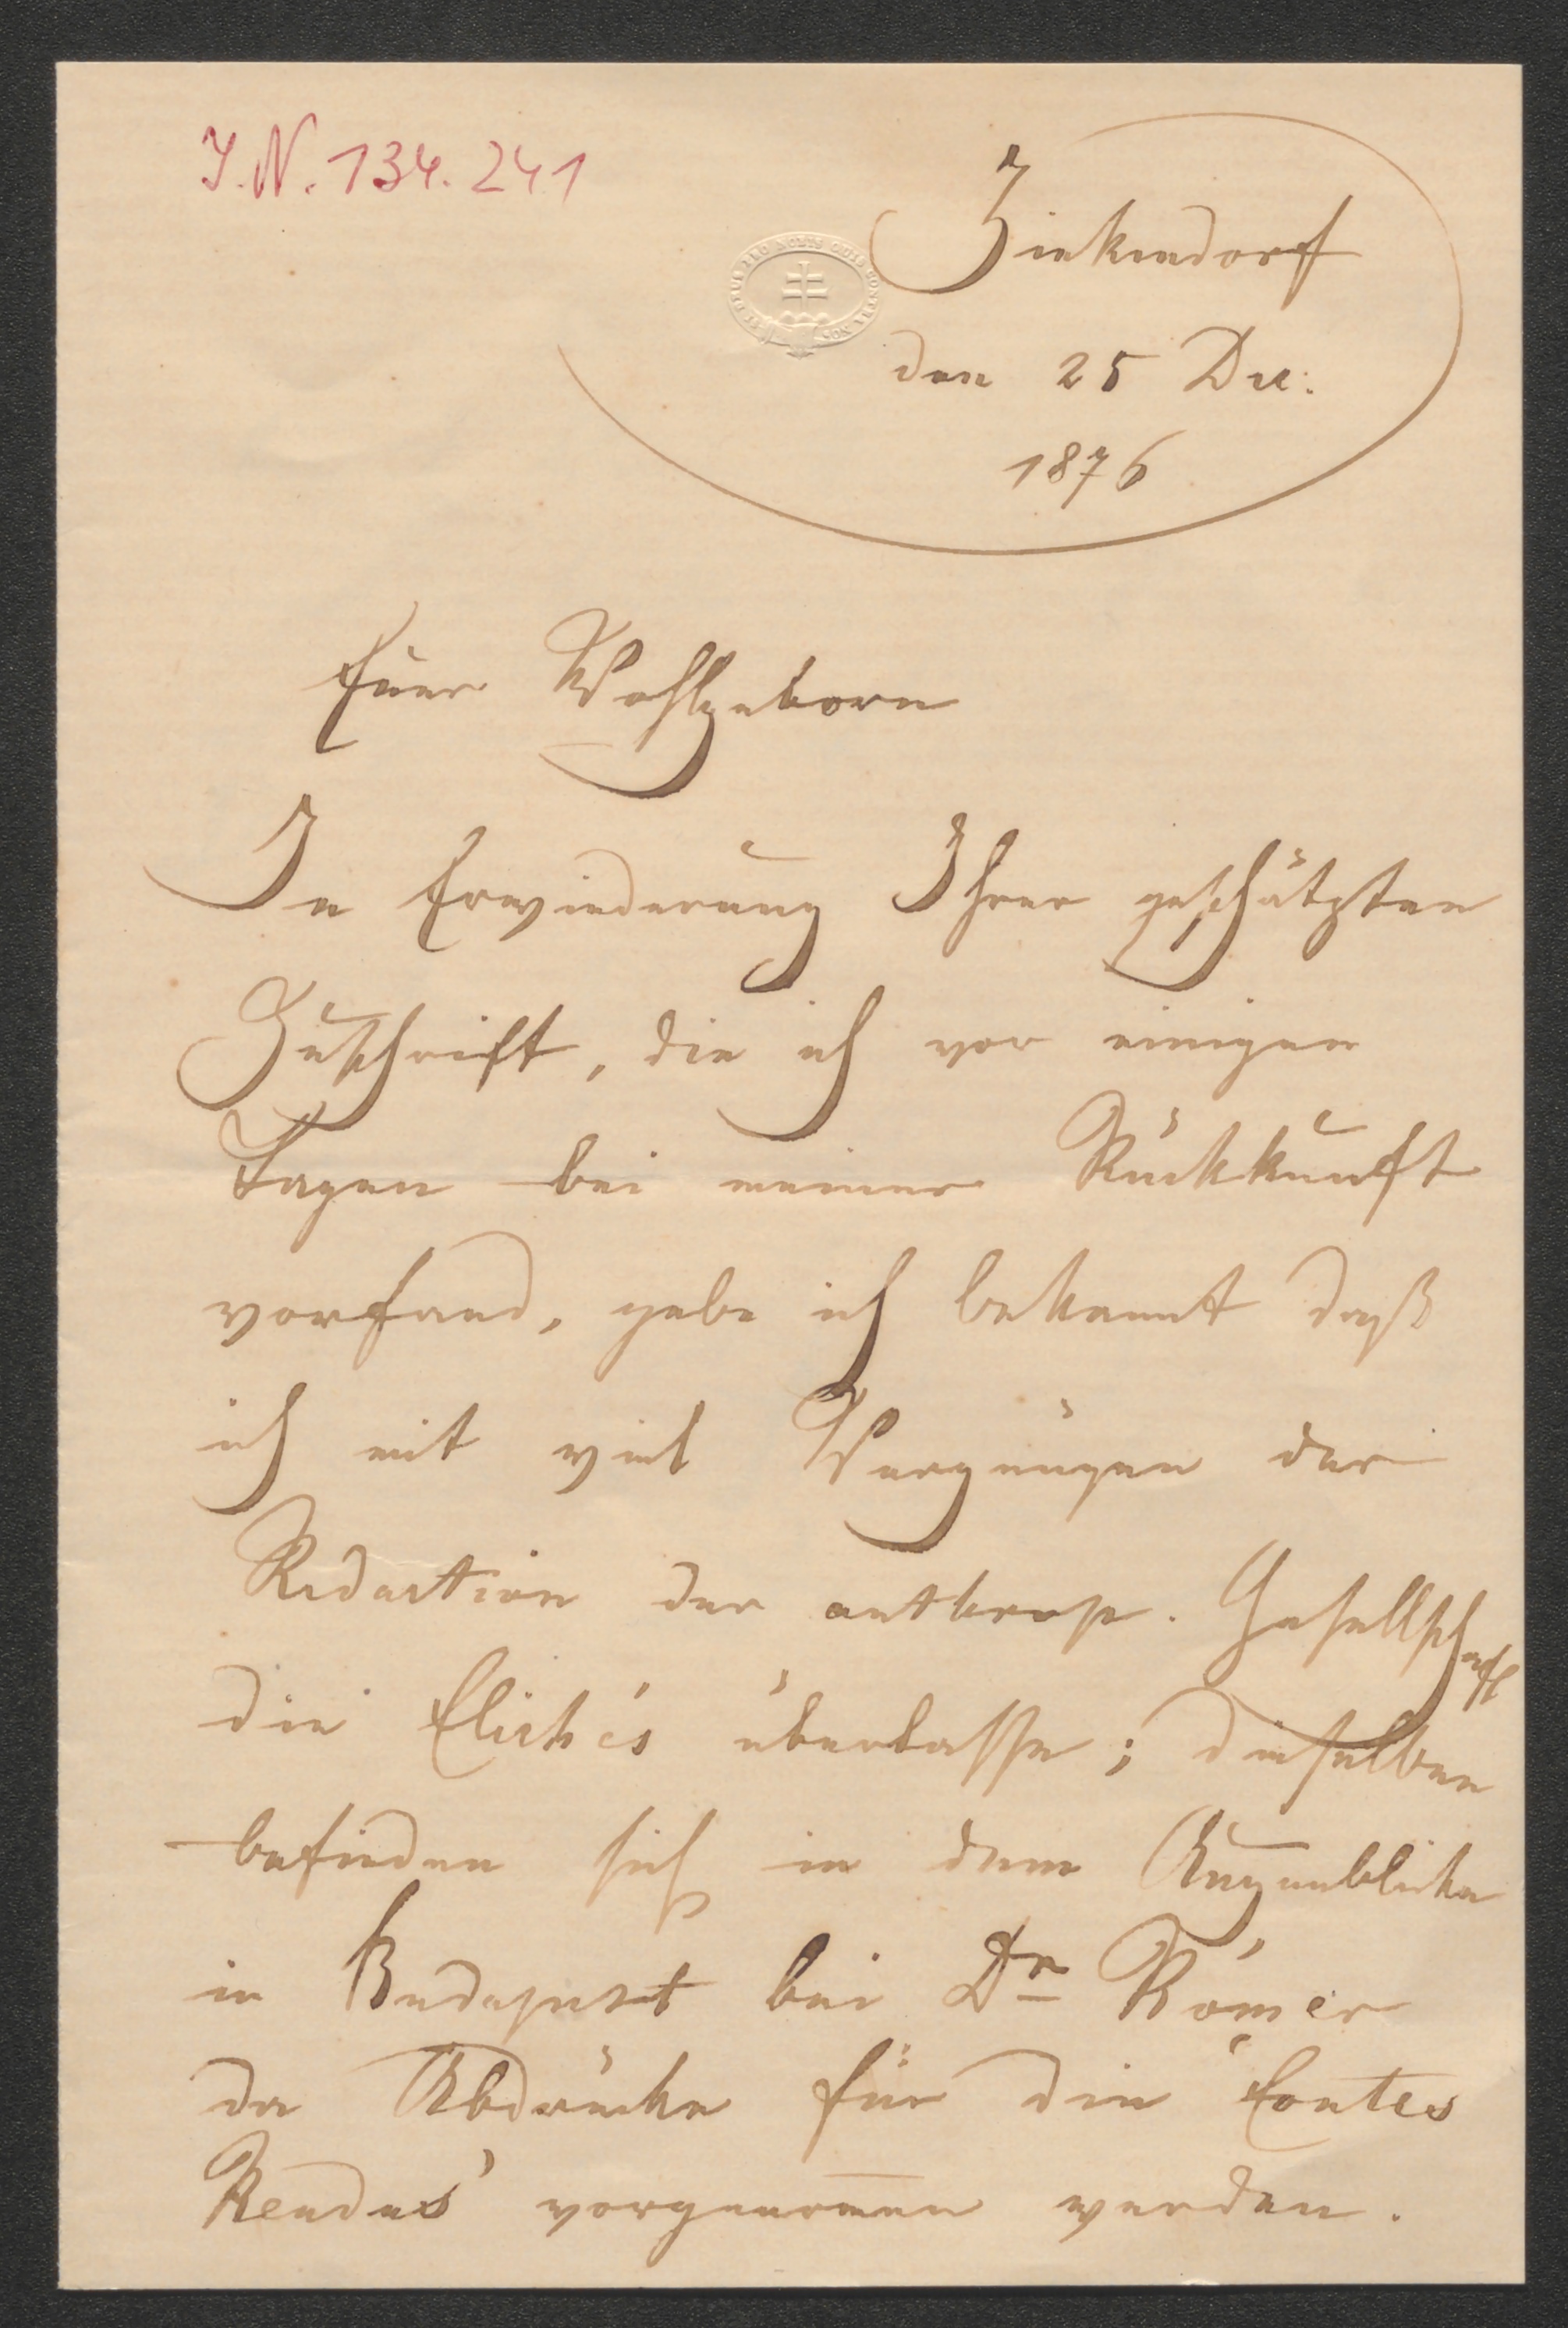 I.N. 134.241
Zinkendorf
den 25 Dec:
1876
SI DEUS PRO NOBIS QUIS CONTRA NOS
Euer Wohlgeborn
In Erwiederung Ihrer geschätzten
Zuschrift, die ich vor einigen
Tagen bei meiner Rückkunft
vorfand, gebe ich bekannt daß
ich mit viel Vergnügen der
Redaction der anthrop. Gesellschaft
die Clichés überlasse; dieselben
befinden sich in dem Augenblicke
in Budapest bei Dr Rómer
da Abdrücke für die Contes
Rendus vorgenom̄en werden.